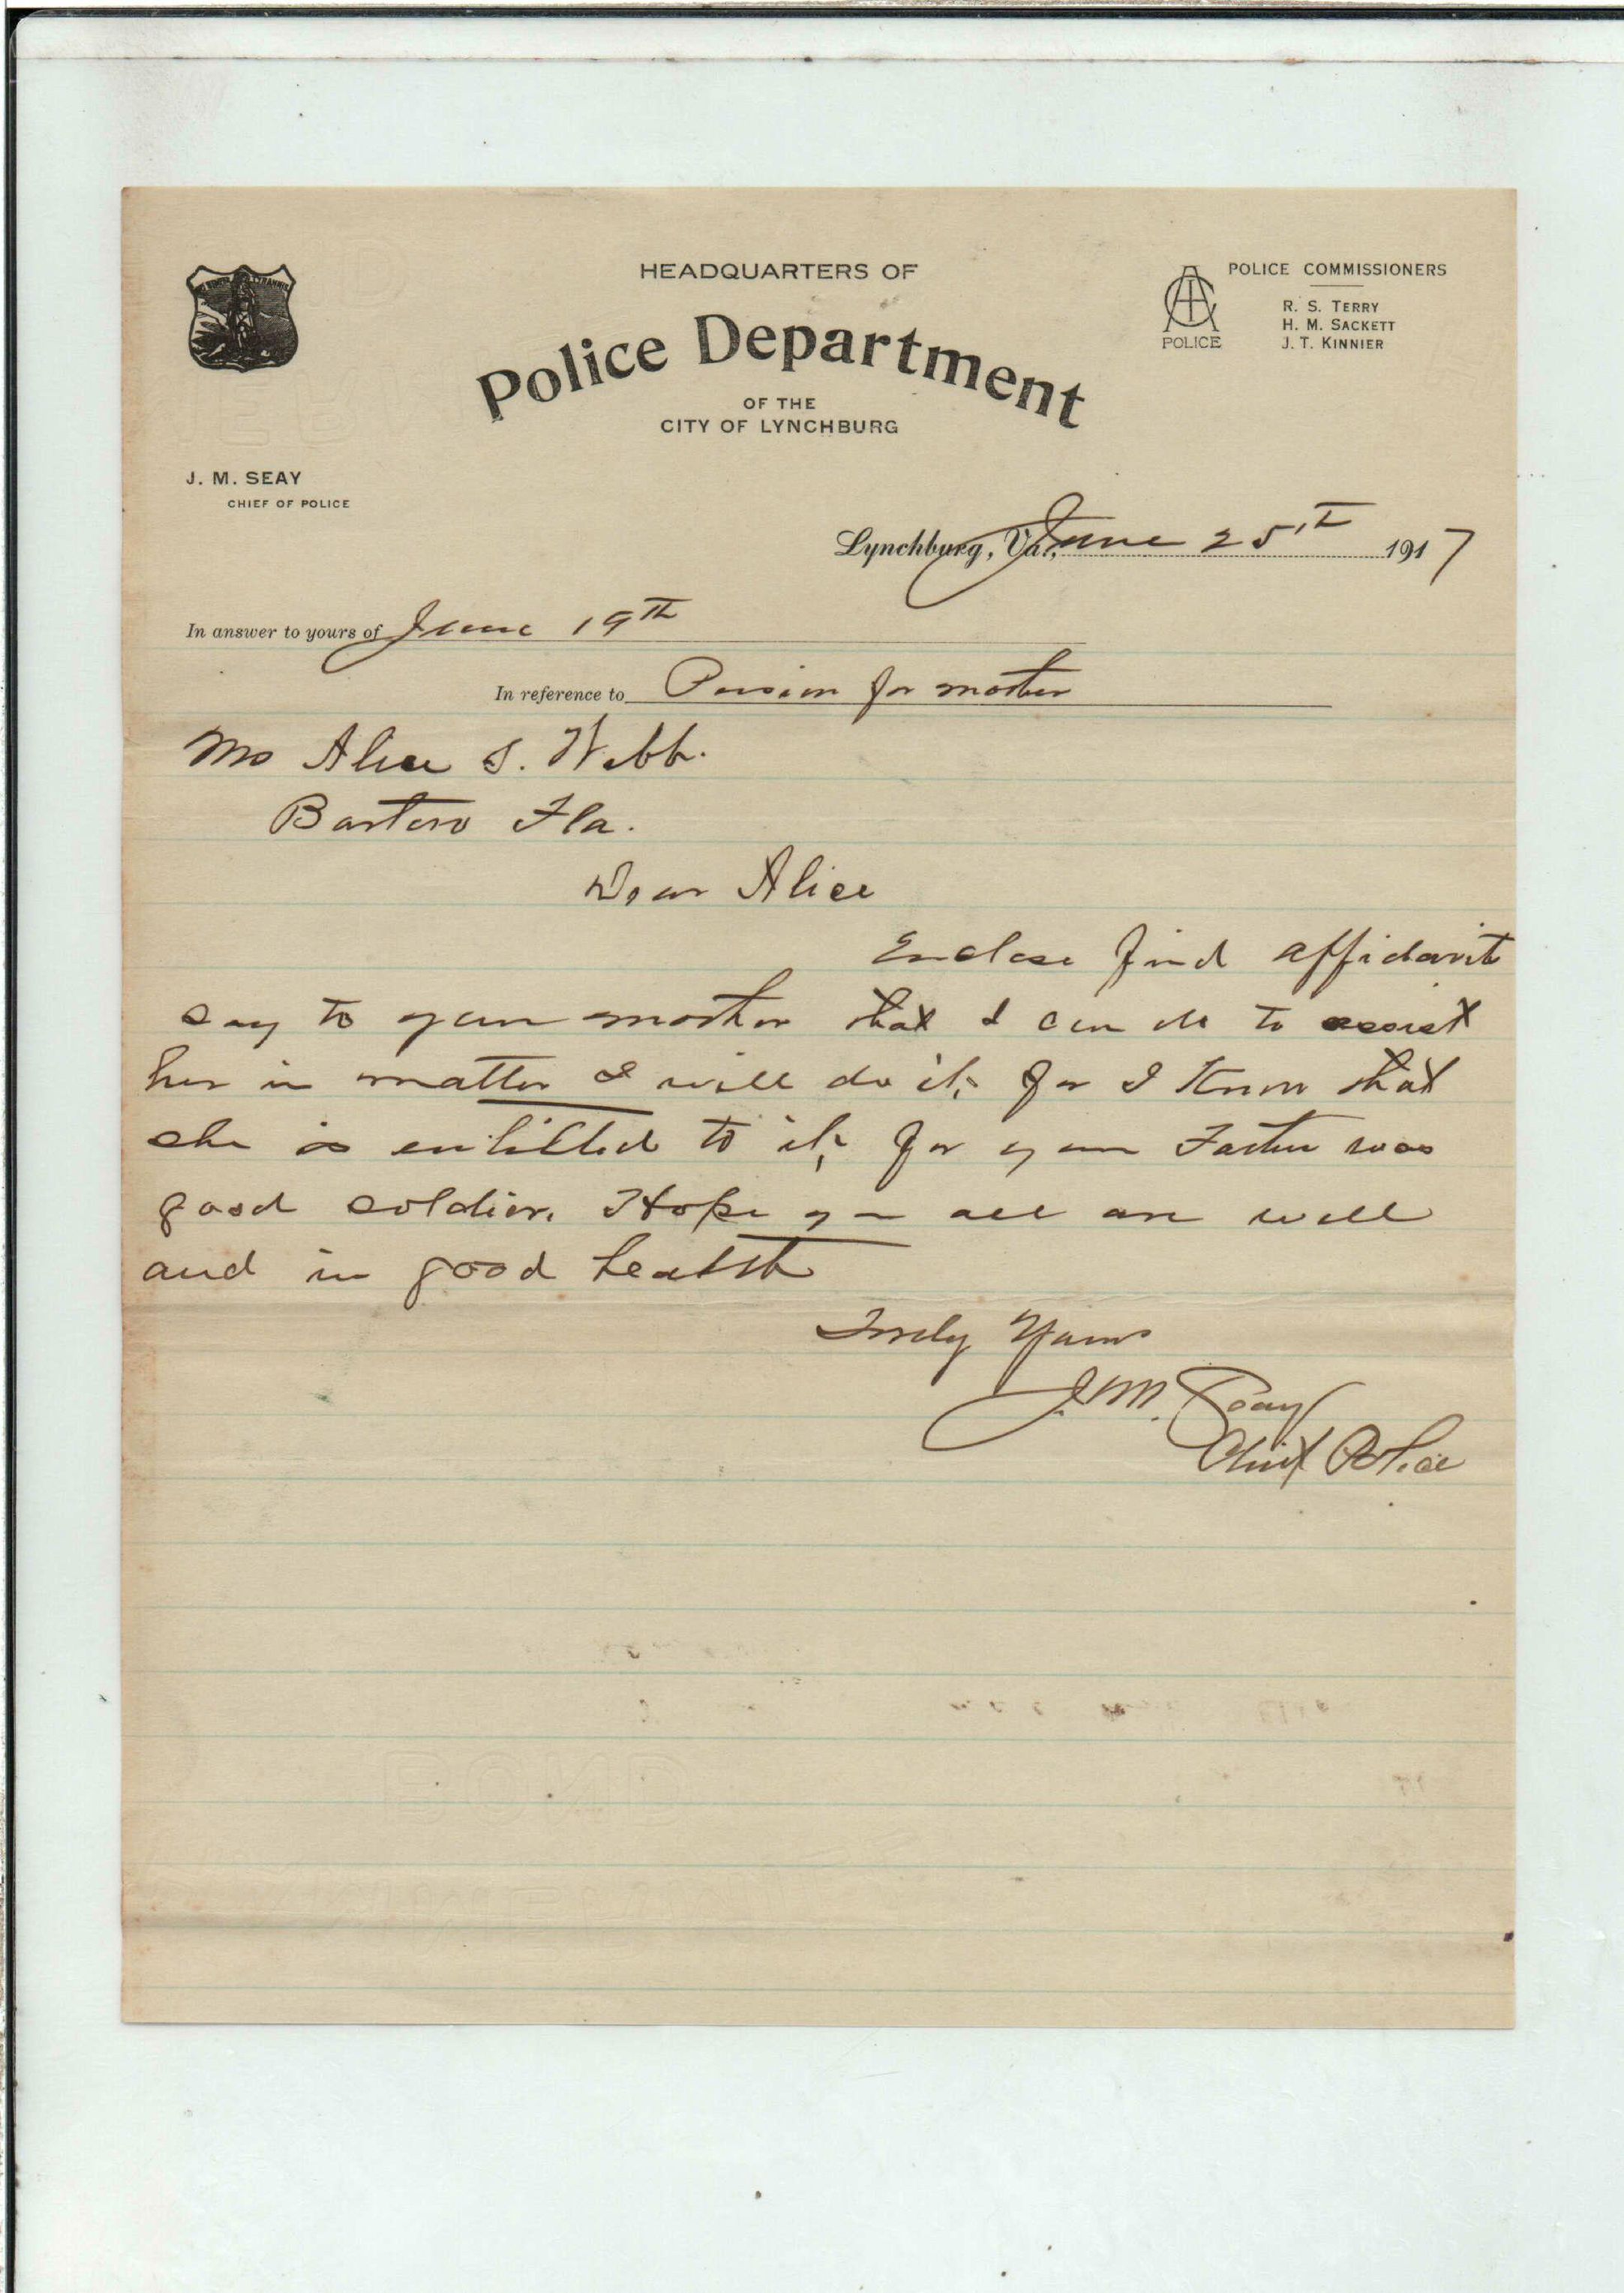 HEADQUARTERS OF
Police Department
OF THE
CITY OF LYNCHBURG
POLICE
POLICE COMMISSIONERS
R. S. TERRY
H. M. SACKETT
J. T. KINNIER
J. M. SEAY
CHIEF OF POLICE
Lynchburg, Va., June 25th 1917
In answer to yours of June 19th
In reference to Pension for mother
Mrs Alice S. Webb.
Bartow Fla.
Dear Alice
Enclose find affidavit
say to your mother that I can do to assist
her in matter I will do it, for I Know that
she is entitled to it, for your Father was
good soldier. Hope you all are well
and in good health
Truly Yours
J. M. Seay
Chief Police
BOND